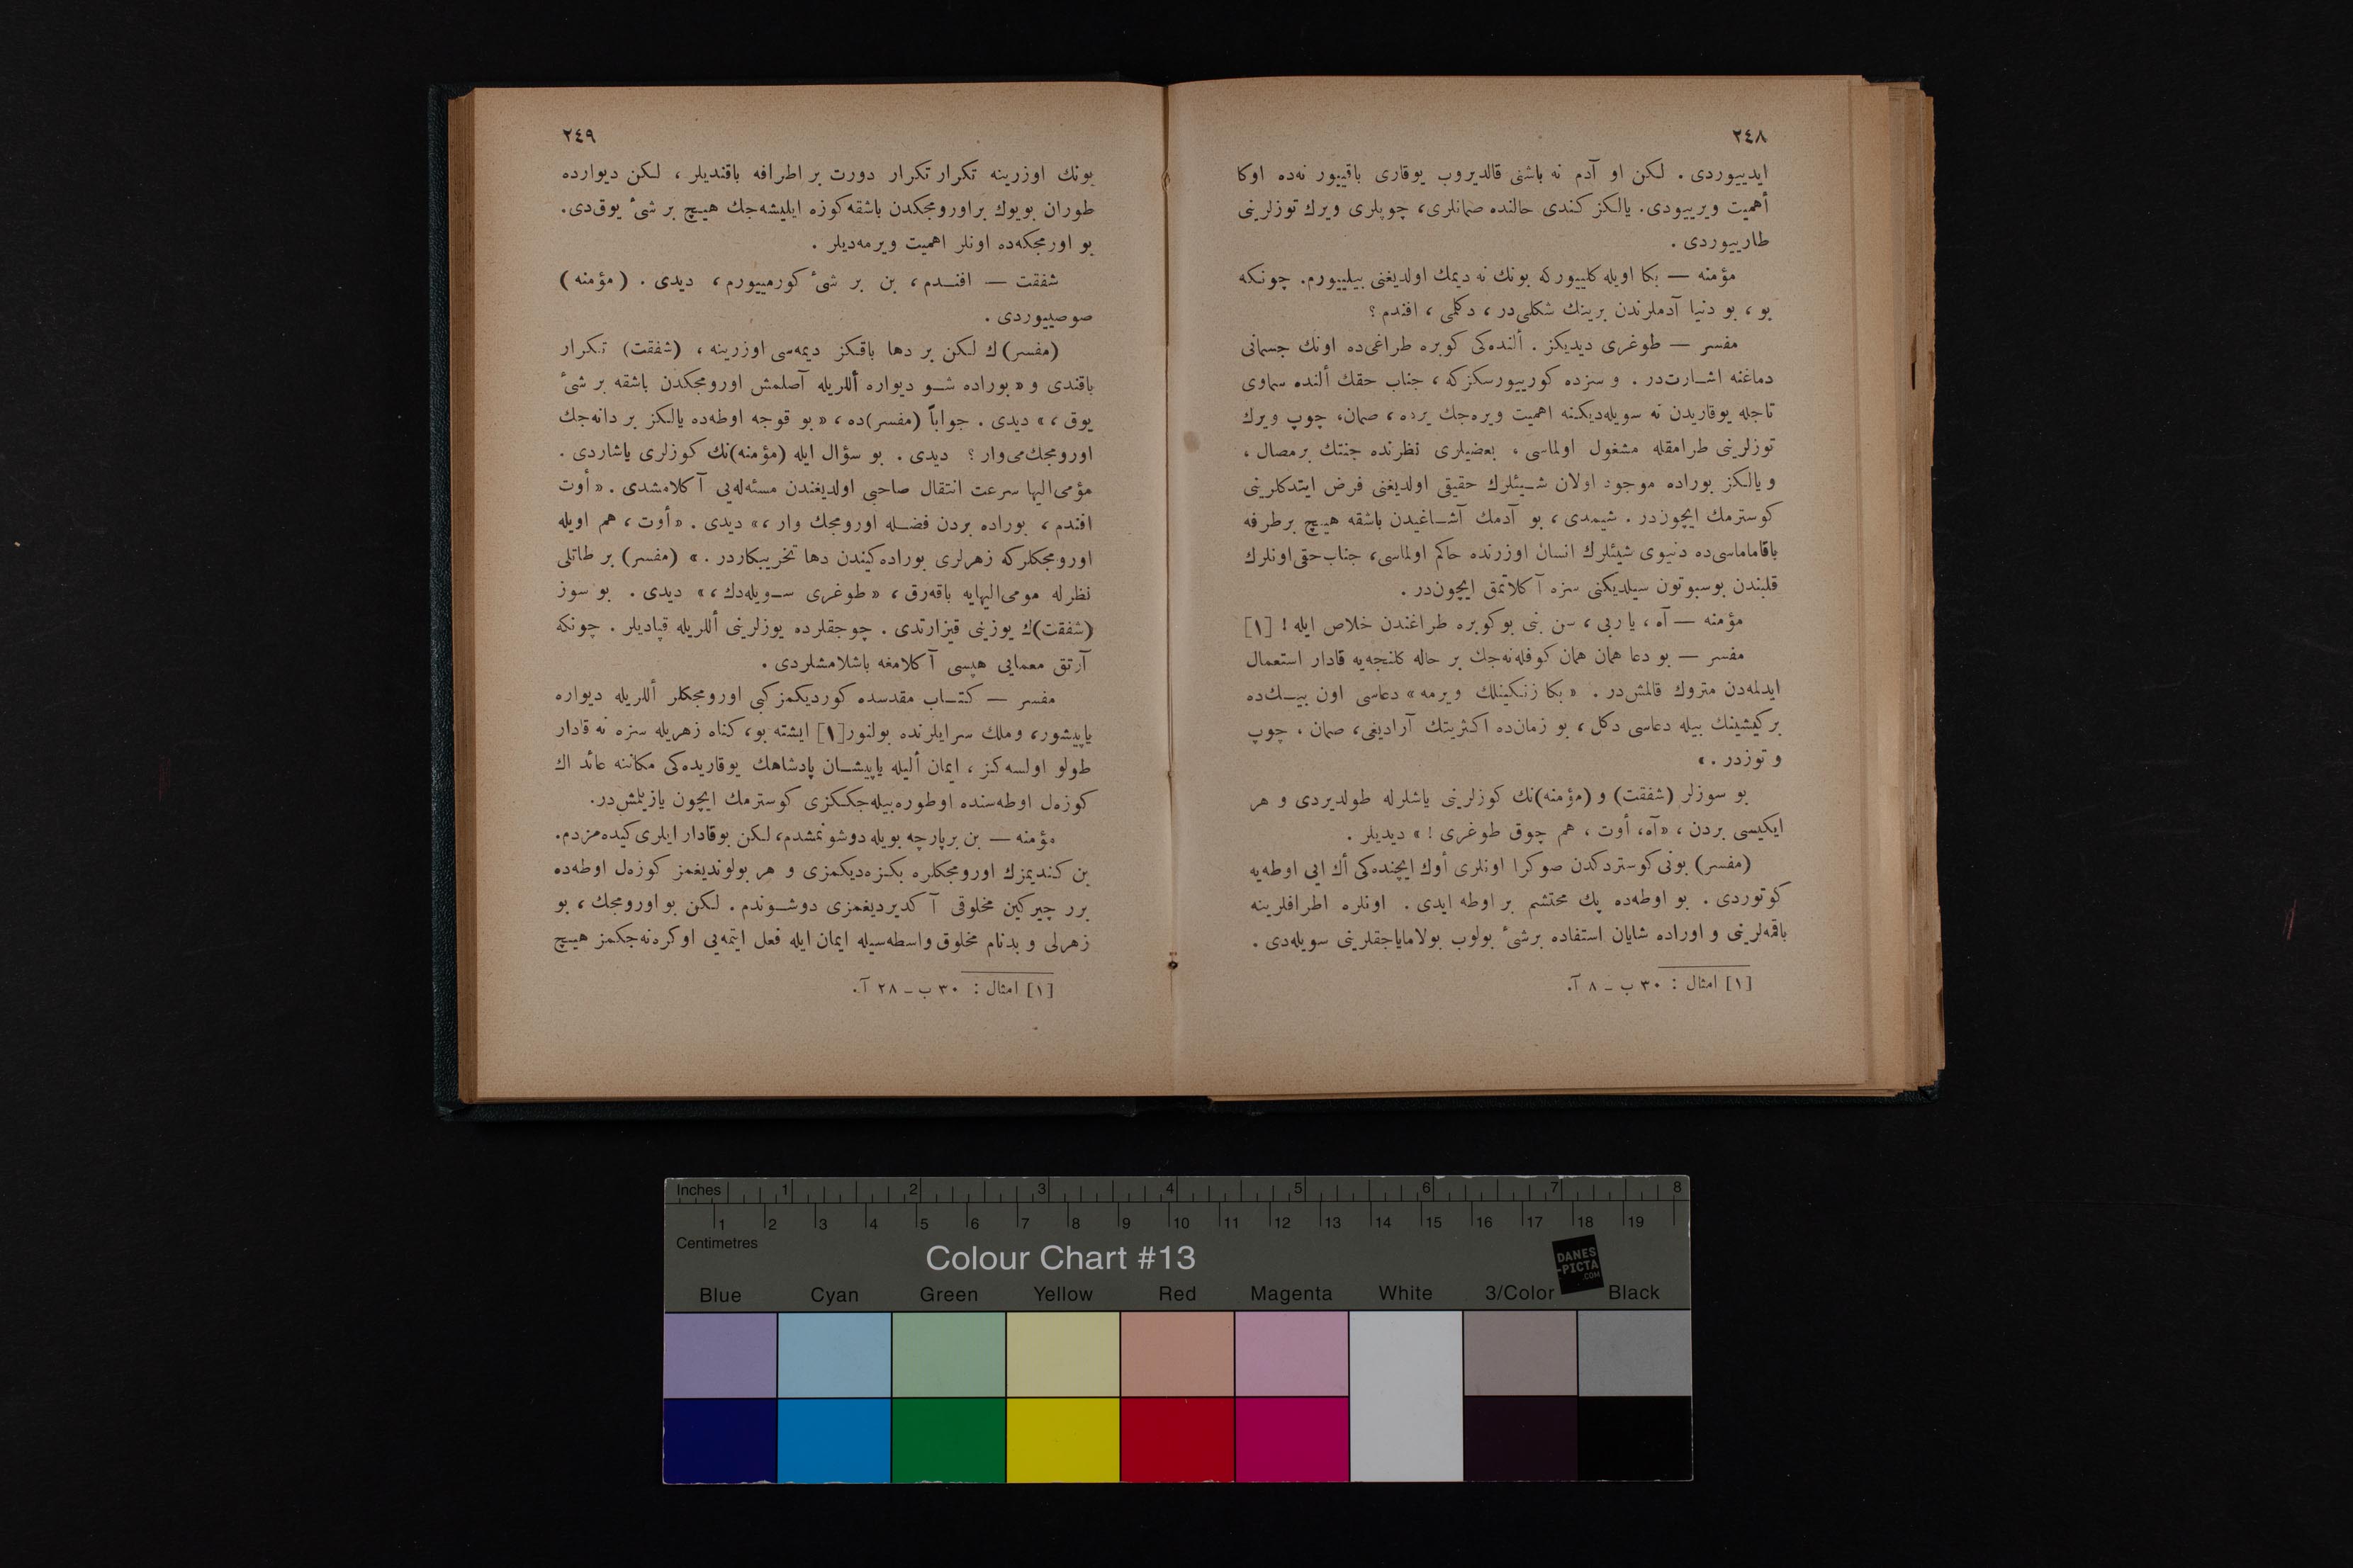 ٢٤٨
ايدييوردى . لكن او آدم نه باشنى قالديروب يوقارى باقييور نه‌ده اوكا
أهميت ويرييودى. يالكز كندى حالنده صمانلرى، چوپلرى ويرك توزلرينى
طارييوردى .
مؤمنه — بكا اويله كلييوركه بونك نه ديمك اولديغنى بيلييورم. چونكه
بو ، بو دنيا آدملرندن برينك شكلى‌در ، دكلمى ، افندم ؟
مفسر — طوغرى ديديكز . ألنده‌كى كوبره طراغى‌ده اونك جسمانى
دماغنه اشارت‌در . و سزده كورييورسكزكه ، جناب حقك ألنده سماوى
تاجله يوقاريدن نه سويله‌ديكنه اهميت ويره‌جك يرده ، صمان، چوپ ويرك
توزلرينى طرامقله مشغول اولماسى ، بعضيلرى نظرنده جنتك برمصال ،
و يالكز بوراده موجود اولان شيئلرك حقيقى اولديغنى فرض ايتدكلرينى
كوسترمك ايچون‌در . شيمدى ، بو آدمك آشاغيدن باشقه هيچ برطرفه
باقاماماسى‌ده دنيوى شيئلرك انسان اوزرنده حاكم اولماسى، جناب‌حقى‌اونلرك
قلبندن بوسبوتون سيلديكنى سزه آكلاتمق ايچون‌در .
مؤمنه — آه ، يا ربى ، سن بنى بوكوبره طراغندن خلاص ايله ! [١]
مفسر — بو دعا همان همان كوفله‌نه‌جك بر حاله كلنجه‌يه قادار استعمال
ايدلمه‌دن متروك قالمش‌در . «بكا زنكينلك ويرمه» دعاسى اون بيك‌ده
بركيشينك بيله دعاسى دكل ، بو زمان‌ده اكثريتك آراديغى، صمان ، چوپ
و توزدر .،
بو سوزلر (شفقت) و (مؤمنه)نك كوزلرينى ياشلرله طولديردى و هر
ايكيسى بردن ، «آه، أوت ، هم چوق طوغرى !» ديديلر .
(مفسر) بونى كوستردكدن صوكرا اونلرى أوك ايچنده‌كى أك ايى اوطه‌يه
كوتوردى . بو اوطه‌ده پك محتشم بر اوطه ايدى . اونلره اطرافلرينه
باقمه‌لرينى و اوراده شايان استفاده برشئ بولوب بولاماياجقلرينى سويله‌دى .
[١] امثال : ٣٠ ب ـ ٨ آ.
٢٤٩
بونك اوزرينه تكرار تكرار دورت بر اطرافه باقنديلر ، لكن ديوارده
طوران بويوك براورومجكدن باشقه كوزه ايليشه‌جك هيچ بر شئ يوق‌دى.
بو اورمجكه‌ده اونلر اهميت ويرمه‌ديلر .
شفقت — افندم ، بن بر شئ كورمييورم ، ديدى . (مؤمنه)
صوصييوردى .
(مفسر)ك لكن بر دها باقكز ديمه‌سى اوزرينه ، (شفقت) تكرار
باقندى و «بوراده شو ديواره أللريله آصلمش اورومجكدن باشقه بر شئ
يوق ،» ديدى . جواباً (مفسر)ده ، «بو قوجه اوطه‌ده يالكز بر دانه‌جك
اورومجك‌مى‌وار ؟ ديدى . بو سؤال ايله (مؤمنه)نك كوزلرى ياشاردى .
مؤمى‌اليها سرعت انتقال صاحبى اولديغندن مسئله‌يى آكلامشدى . «أوت
افندم ، بوراده بردن فضله اورومجك وار ،» ديدى . «أوت ، هم اويله
اورومجكلركه زهرلرى بوراده‌كيندن دها تخريبكاردر .» (مفسر) بر طاتلى
نظرله مومى‌اليهايه باقه‌رق ، «طوغرى سويله‌دك ،» ديدى . بو سوز
(شفقت)ك يوزينى قيزارتدى . چوجقلرده يوزلرينى أللريله قپاديلر . چونكه
آرتق معمايى هپسى آكلامغه باشلامشلردى .
مفسر — كتاب مقدسده كورديكمز كبى اورومجكلر أللريله ديواره
ياپيشور، وملك سرايلرنده بولنور[١] ايشته بو، كناه زهريله سزه نه قادار
طولو اولسه‌كز ، ايمان أليله ياپيشان پادشاهك يوقاريده‌كى مكاننه عائد اك
كوزه‌ل اوطه‌سنده اوطوره‌بيله‌جككزى كوسترمك ايچون يازيلمش‌در.
مؤمنه — بن برپارچه بويله دوشونمشدم، لكن بوقادار ايلرى كيده‌مزدم.
بن كنديمزك اورومجكلره بكزه‌ديكمزى و هر بولونديغمز كوزه‌ل اوطه‌ده
برر چيركين مخلوقى آكديرديغمزى دوشوندم . لكن بو اورومجك ، بو
زهرلى و بدنام مخلوق واسطه‌سيله ايمان ايله فعل ايتمه‌يى اوكره‌نه‌جكمز هيچ
[١] امثال : ٣٠ ب ـ ٢٨ آ.
Inches 1 2 3 4 5 6 7 8
1 2 3 4 5 6 7 8 9 10 11 12 13 14 15 16 17 18 19
Centimetres
Colour Chart #13
DANES
-PICTA
.COM
Blue Cyan Green Yellow Red Magenta White 3/Color Black